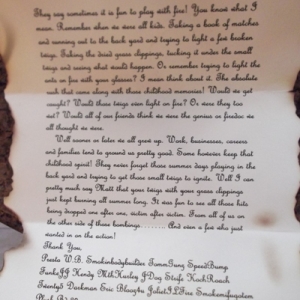 They say sometimes it is fun to play with fire! You know what I
mean. Remember when we were all kids. Taking a book of matches
and running out to the back yard and trying to light a few broken
twigs. Taking the dried grass clippings, tucking it under the small
twigs and seeing what would happen. Or remember trying to light the
ants on fire with your glasses? I mean think about it. The absolute
rush that came along with those childhood memories! Would we get
caught? Would those twigs even light on fire? Or were they too
wet? Would all of our friends think we were the genius or firedoc we
all thought we were.
Well sooner or later we all grew up. Work, businesses, careers
and families tend to ground us pretty good. Some however kept that
childhood spirit! They never forget those summer days playing in the
back yard and trying to get those small twigs to ignite. Well I can
pretty much say Matt that your twigs with your grass clippings
just kept burning all summer long. It was fun to see all those hits
being dropped one after one, victim after victim. From all of us on
the other side of those bombings......... And even a few who just
wanted in on the action!
Thank You,
Pesto W.B. Smokinbodybuilder SpeedBump
Handy JDog KochRoach
Darkman Eric